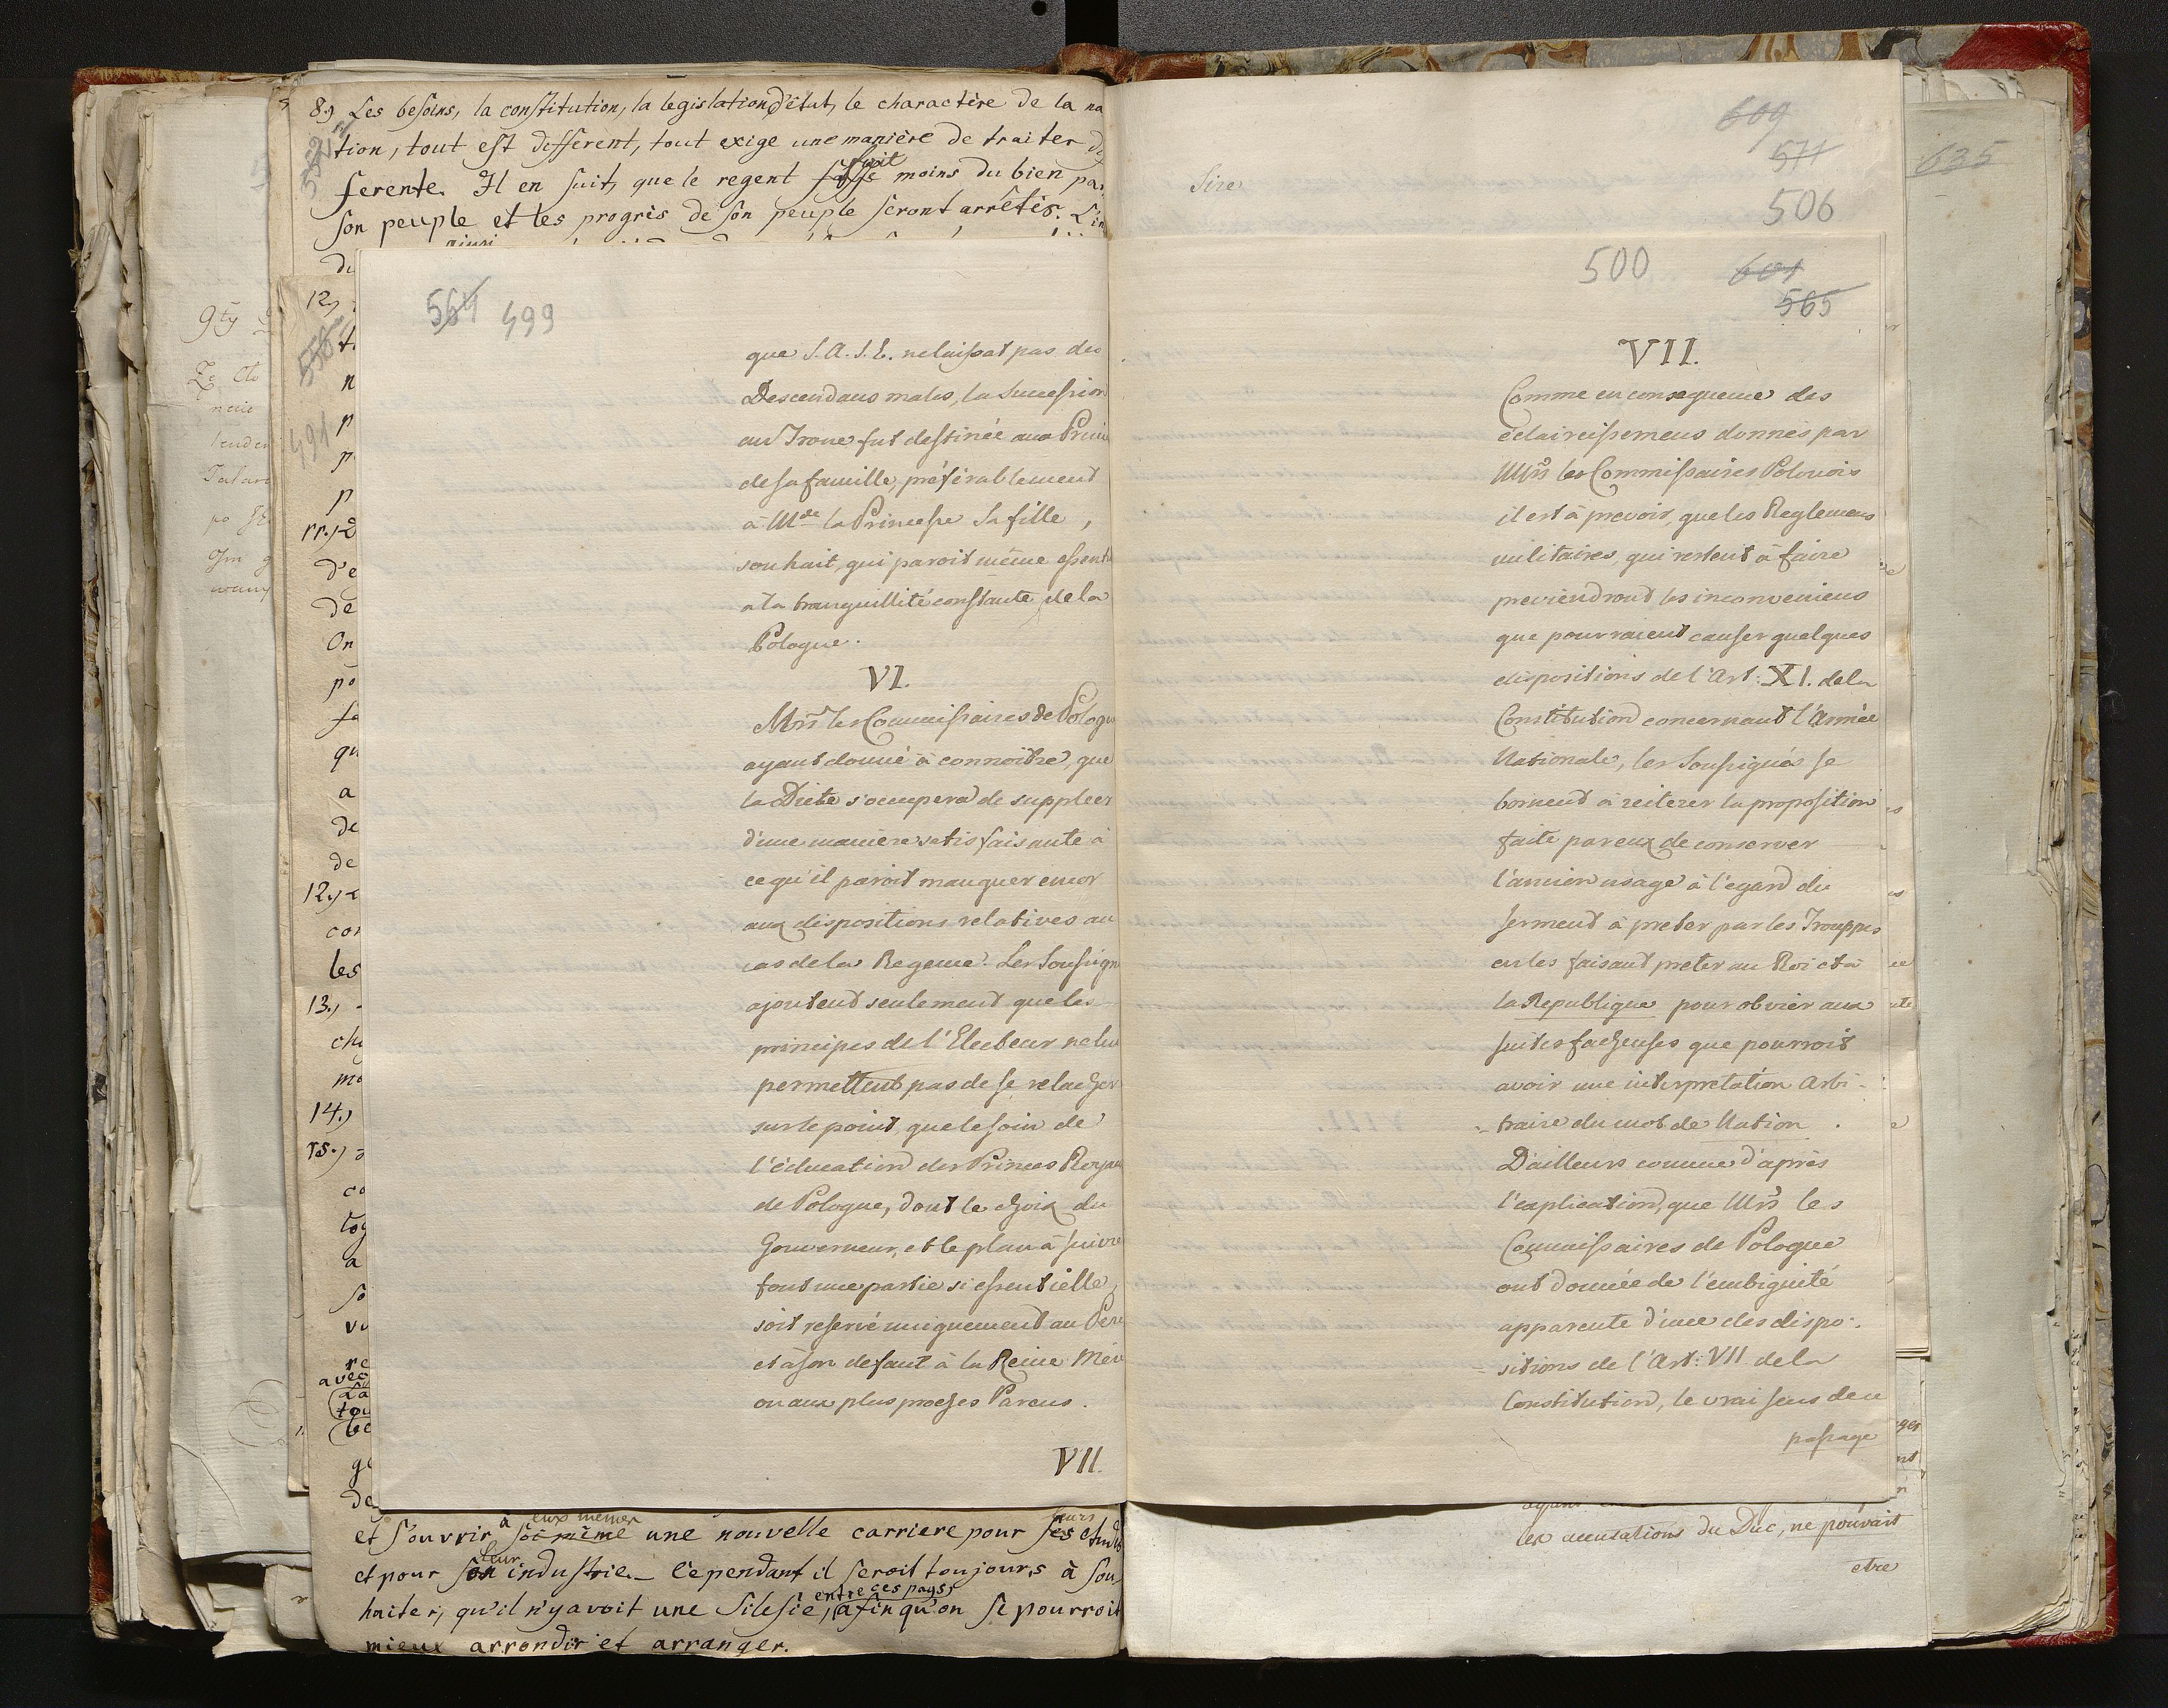 8.) Les besoins, la constitution, la legislation d'état, le charactère de la na
tion, tout est different, tout exige une manière de traiter di
ferente. Il en suit, que le regent fasse fait moins du bien par
son peuple et les progrès de son peuple seront arrêtés. L'in
564 499
que S. A. S. E. ne laissat pas des
Descendans males, la Succession
au Trone fut destinée aux Princ
de sa famille, préférablement
à Mde la Princesse Sa fille,
souhait, qui paroit même essenti
a la tranquillité constante de la
Pologne.
VI.
Mrs les Commissaires de Pologn
ayant donné à connoître, que
la Diete s'occupera de suppleer
d'une maniere satisfaisante à
ce qu'il paroit manquer encor
aux dispositions relatives au
cas de la Regence. Les Soussign
ajoutent seulement que les
principes de l'Electeur ne lui
permettent pas de se relacher
sur le point, que le soin de
l'éducation des Princes Royau
de Pologne, dont le choix du
Gouverneur, et le plan à suivre
font une partie si essentielle,
soit reservé uniquement au Pere
et à son defaut à la Reine Mere
ou aux plus proches Parens.
VII.
et s'ouvrir à soi même eux memes une nouvelle carriere pour ses leurs etud
et pour son leur industrie. Cependant il seroit toujours à sou
haiter, qu'il n'y avoit une Silesie, entre ces pays, afin qu'on se pourroit
mieux arrondir et arranger.
Sire
609
571
506
635
500
601
565
VII.
Comme en consequence des
eclaircissemens donnés par
Mrs les Commissaires Polonois
il est à prevoir, que les Reglemens
militaires, qui restent à faire
previendront les inconveniens
que pourraient causer quelques
dispositions de l'Art: XI. de la
Constitution concernant l'Armée
Nationale, les Soussignés se
bornent à reiterer la proposition
faite par eux de conserver
l'ancien usage à l'egard du
serment à preter par les Trouppes
en les faisant preter au Roi et à
la Republique pour obvier aux
suites facheuses que pourroit
avoir une interpretation arbi-
-traire du mot de Nation.
D'ailleurs comme d'après
l'explication, que Mrs les
Commissaires de Pologne
ont donnée de l'embiguité
apparente d'une des dispo-
-sitions de l'Art: VII de la
Constitution, le vrai sens de ce
passage
les accusations du Duc, ne pouvait
etre